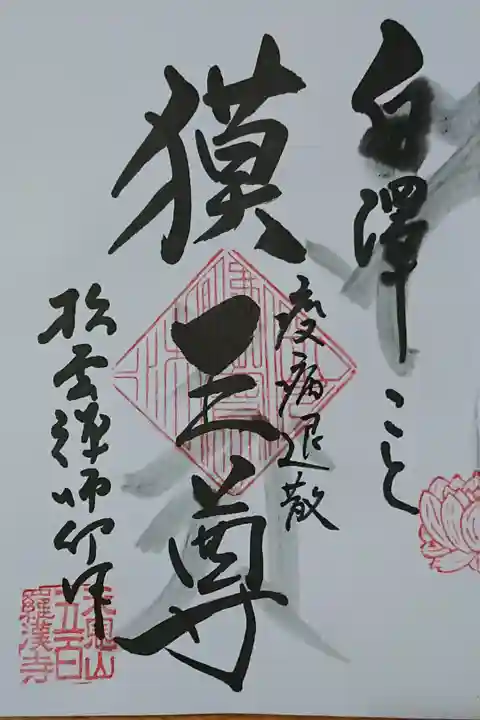 白澤こと
疫病退散
獏王尊
松雲禅師作
天恩山
五百
羅漢寺